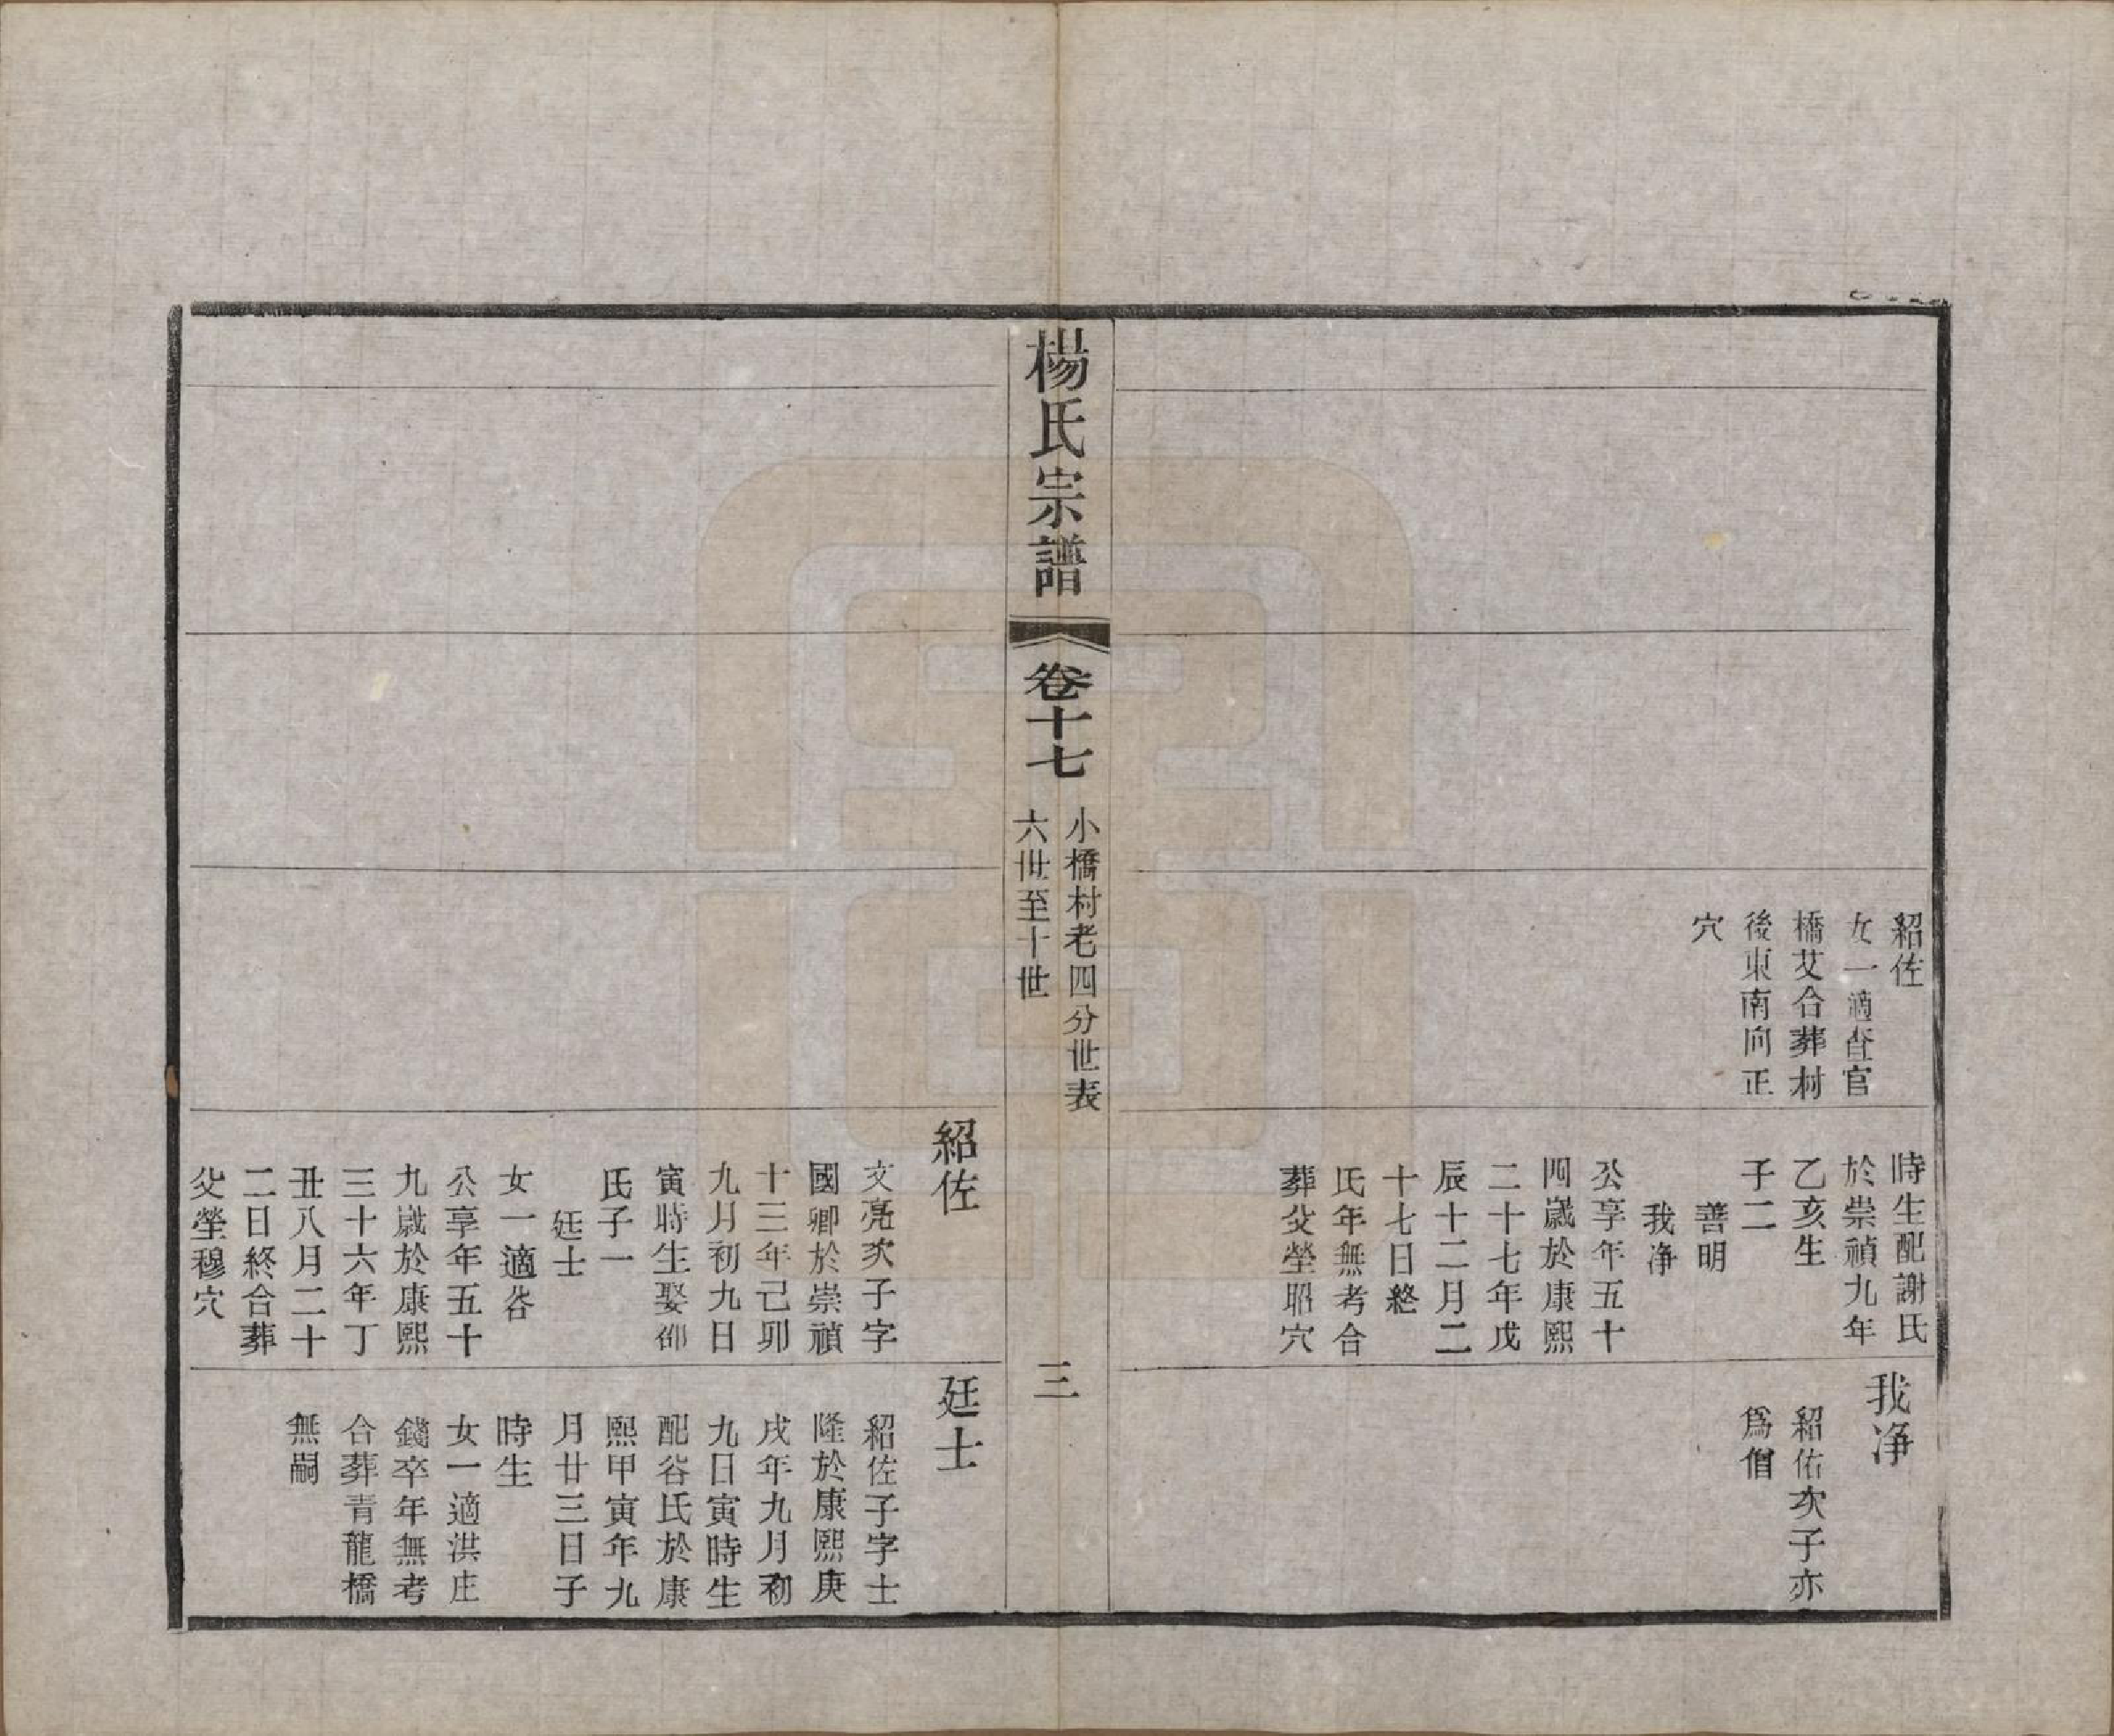 紹佐
女一適查官
橋艾合葬村
後東南向正
穴
時生配謝氏
於崇禎九年
乙亥生
子二
善明
我净
公享年五十
四歲於康熙
二十七年戊
辰十二月二
十七日終
氏年無考合
葬父塋昭穴
我净
紹佑次子亦
爲僧
楊氏宗譜
卷十七
小橋村老四分世表
六世至十世
三
紹佐
文亮次子字
國卿於崇禎
十三年己卯
九月初九日
寅時生娶邵
氏子一
廷士
女一適昝
公享年五十
九歲於康熙
三十六年丁
丑八月二十
二日終合葬
父塋穆穴
廷士
紹佐子字士
隆於康熙庚
戌年九月初
九日寅時生
配谷氏於康
熙甲寅年九
月廿三日子
時生
女一適洪庄
錢卒年無考
合葬青龍橋
無嗣